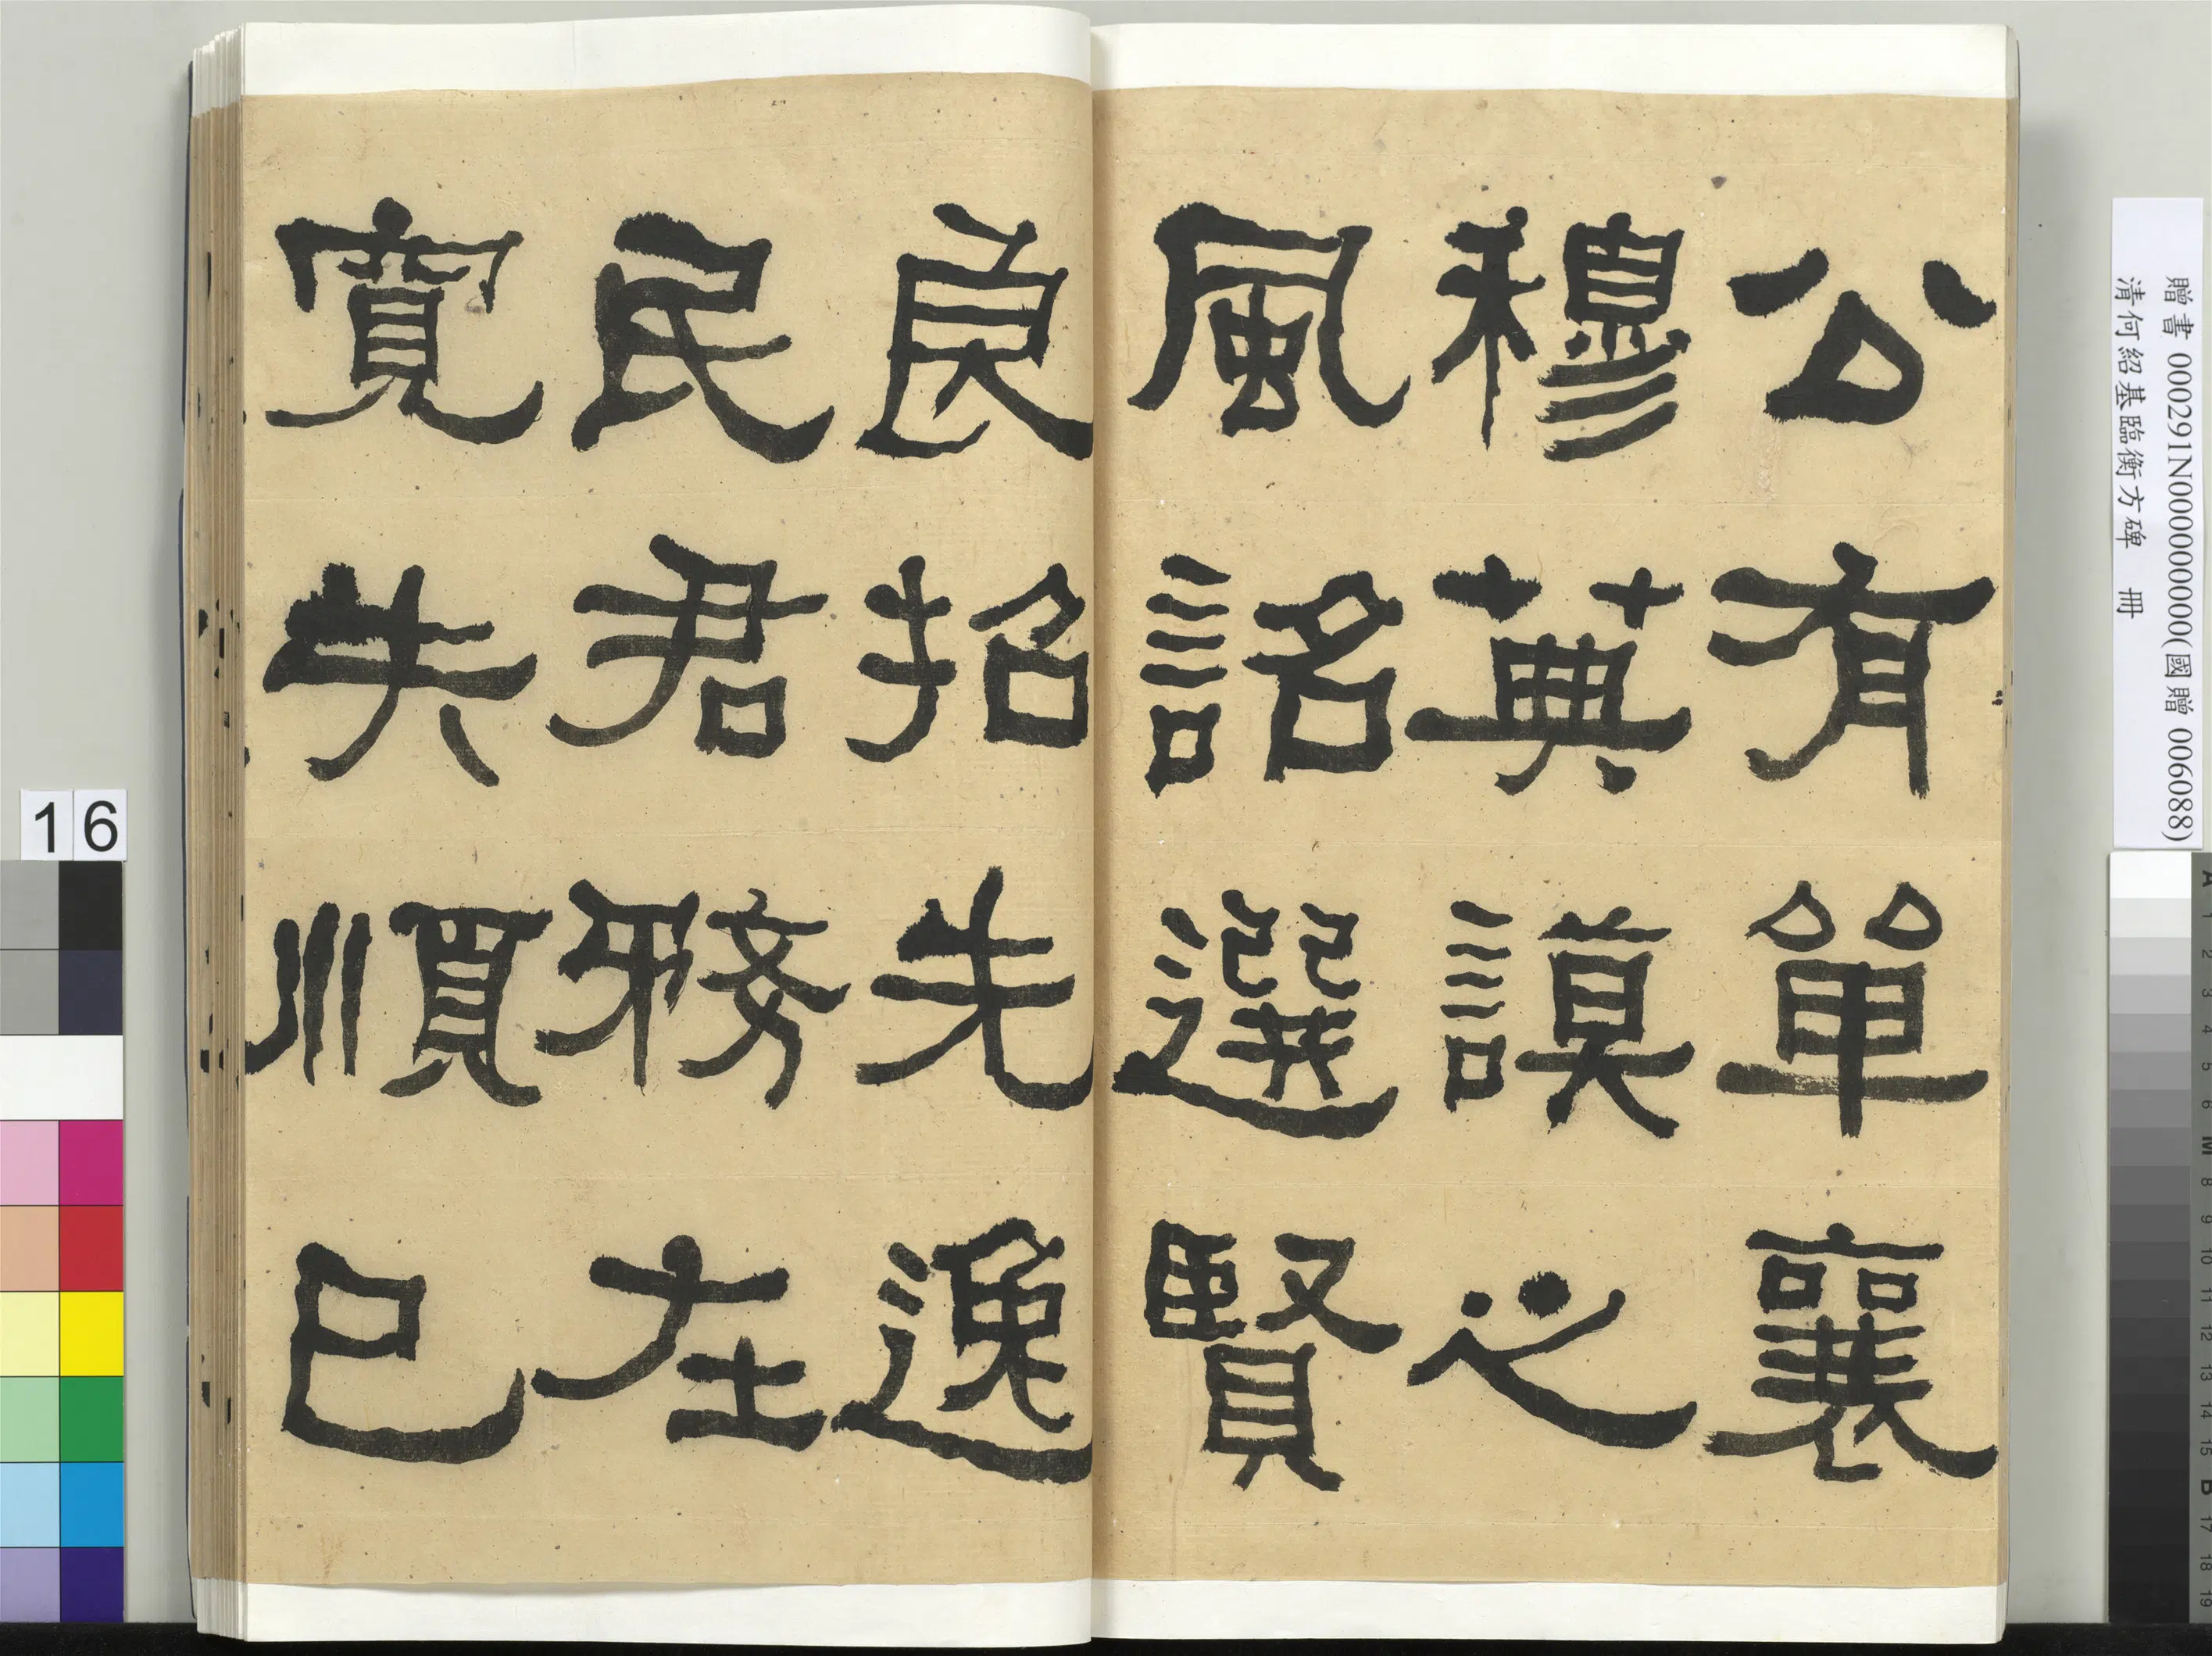 公有單襄
穆英謨之
風詺選賢
良招先逸
民君務在
寬失順已
贈書 000291N000000000(國贈 006088)
清何紹基臨衡方碑 冊
16
A 1 2 3 4 5 6 M 8 9 10 11 12 13 14 15 B 17 18 19